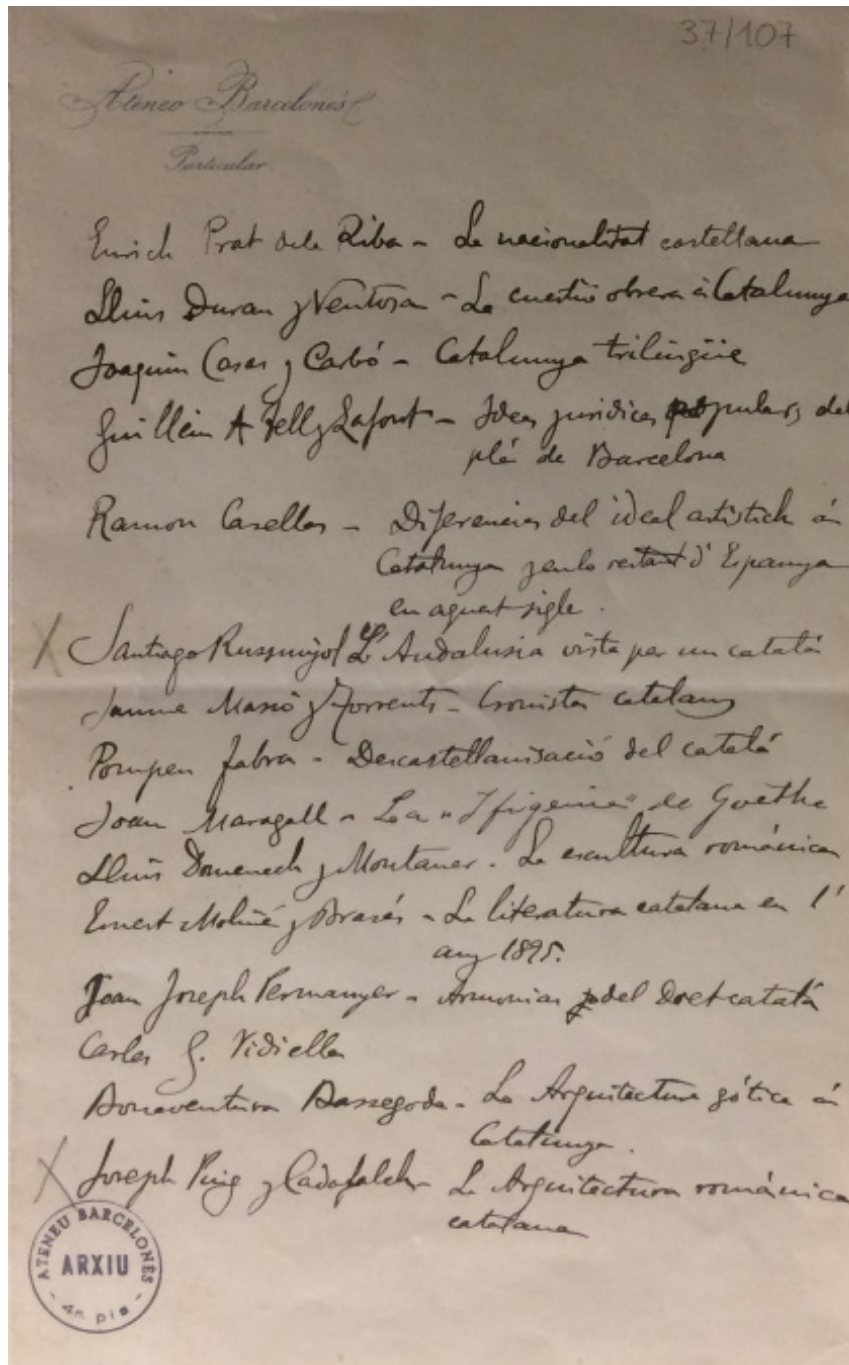 37/107
Ateneo Barcelonés
Particular
Enrich Prat de la Riba - La nacionalitat castellana
Lluis Duran y Ventosa - La cuestió obrera á Catalunya
Joaquim Casas y Carbó - Catalunya trilingüe
Guillem A Tell y Lafont - Ideas juridicas populars del
plá de Barcelona
Ramon Casellas - Diferencias del ideal artistich á
Catalunya y en lo restant d' Espanya
en aquest sigle.
X Santiago Russinyol L' Andalusia vista per un catalá
Jaume Massó y Torrents - Cronistas catalans
Pompeu Fabra - Descastellanisació del catalá
Joan Maragall - La "Ifigenia" de Goethe
Lluis Domenech y Montaner - La escultura románica
Ernest Moliné y Brasés - La literatura catalana en l'
any 1895.
Joan Joseph Permanyer - Armonias del Dret catalá
Carles G. Vidiella
Bonaventura Bassegoda - La Arquitectura gótica á
Catalunya.
X Joseph Puig y Cadafalch - La Arquitectura románica
catalana
ATENEU BARCELONÈS
ARXIU